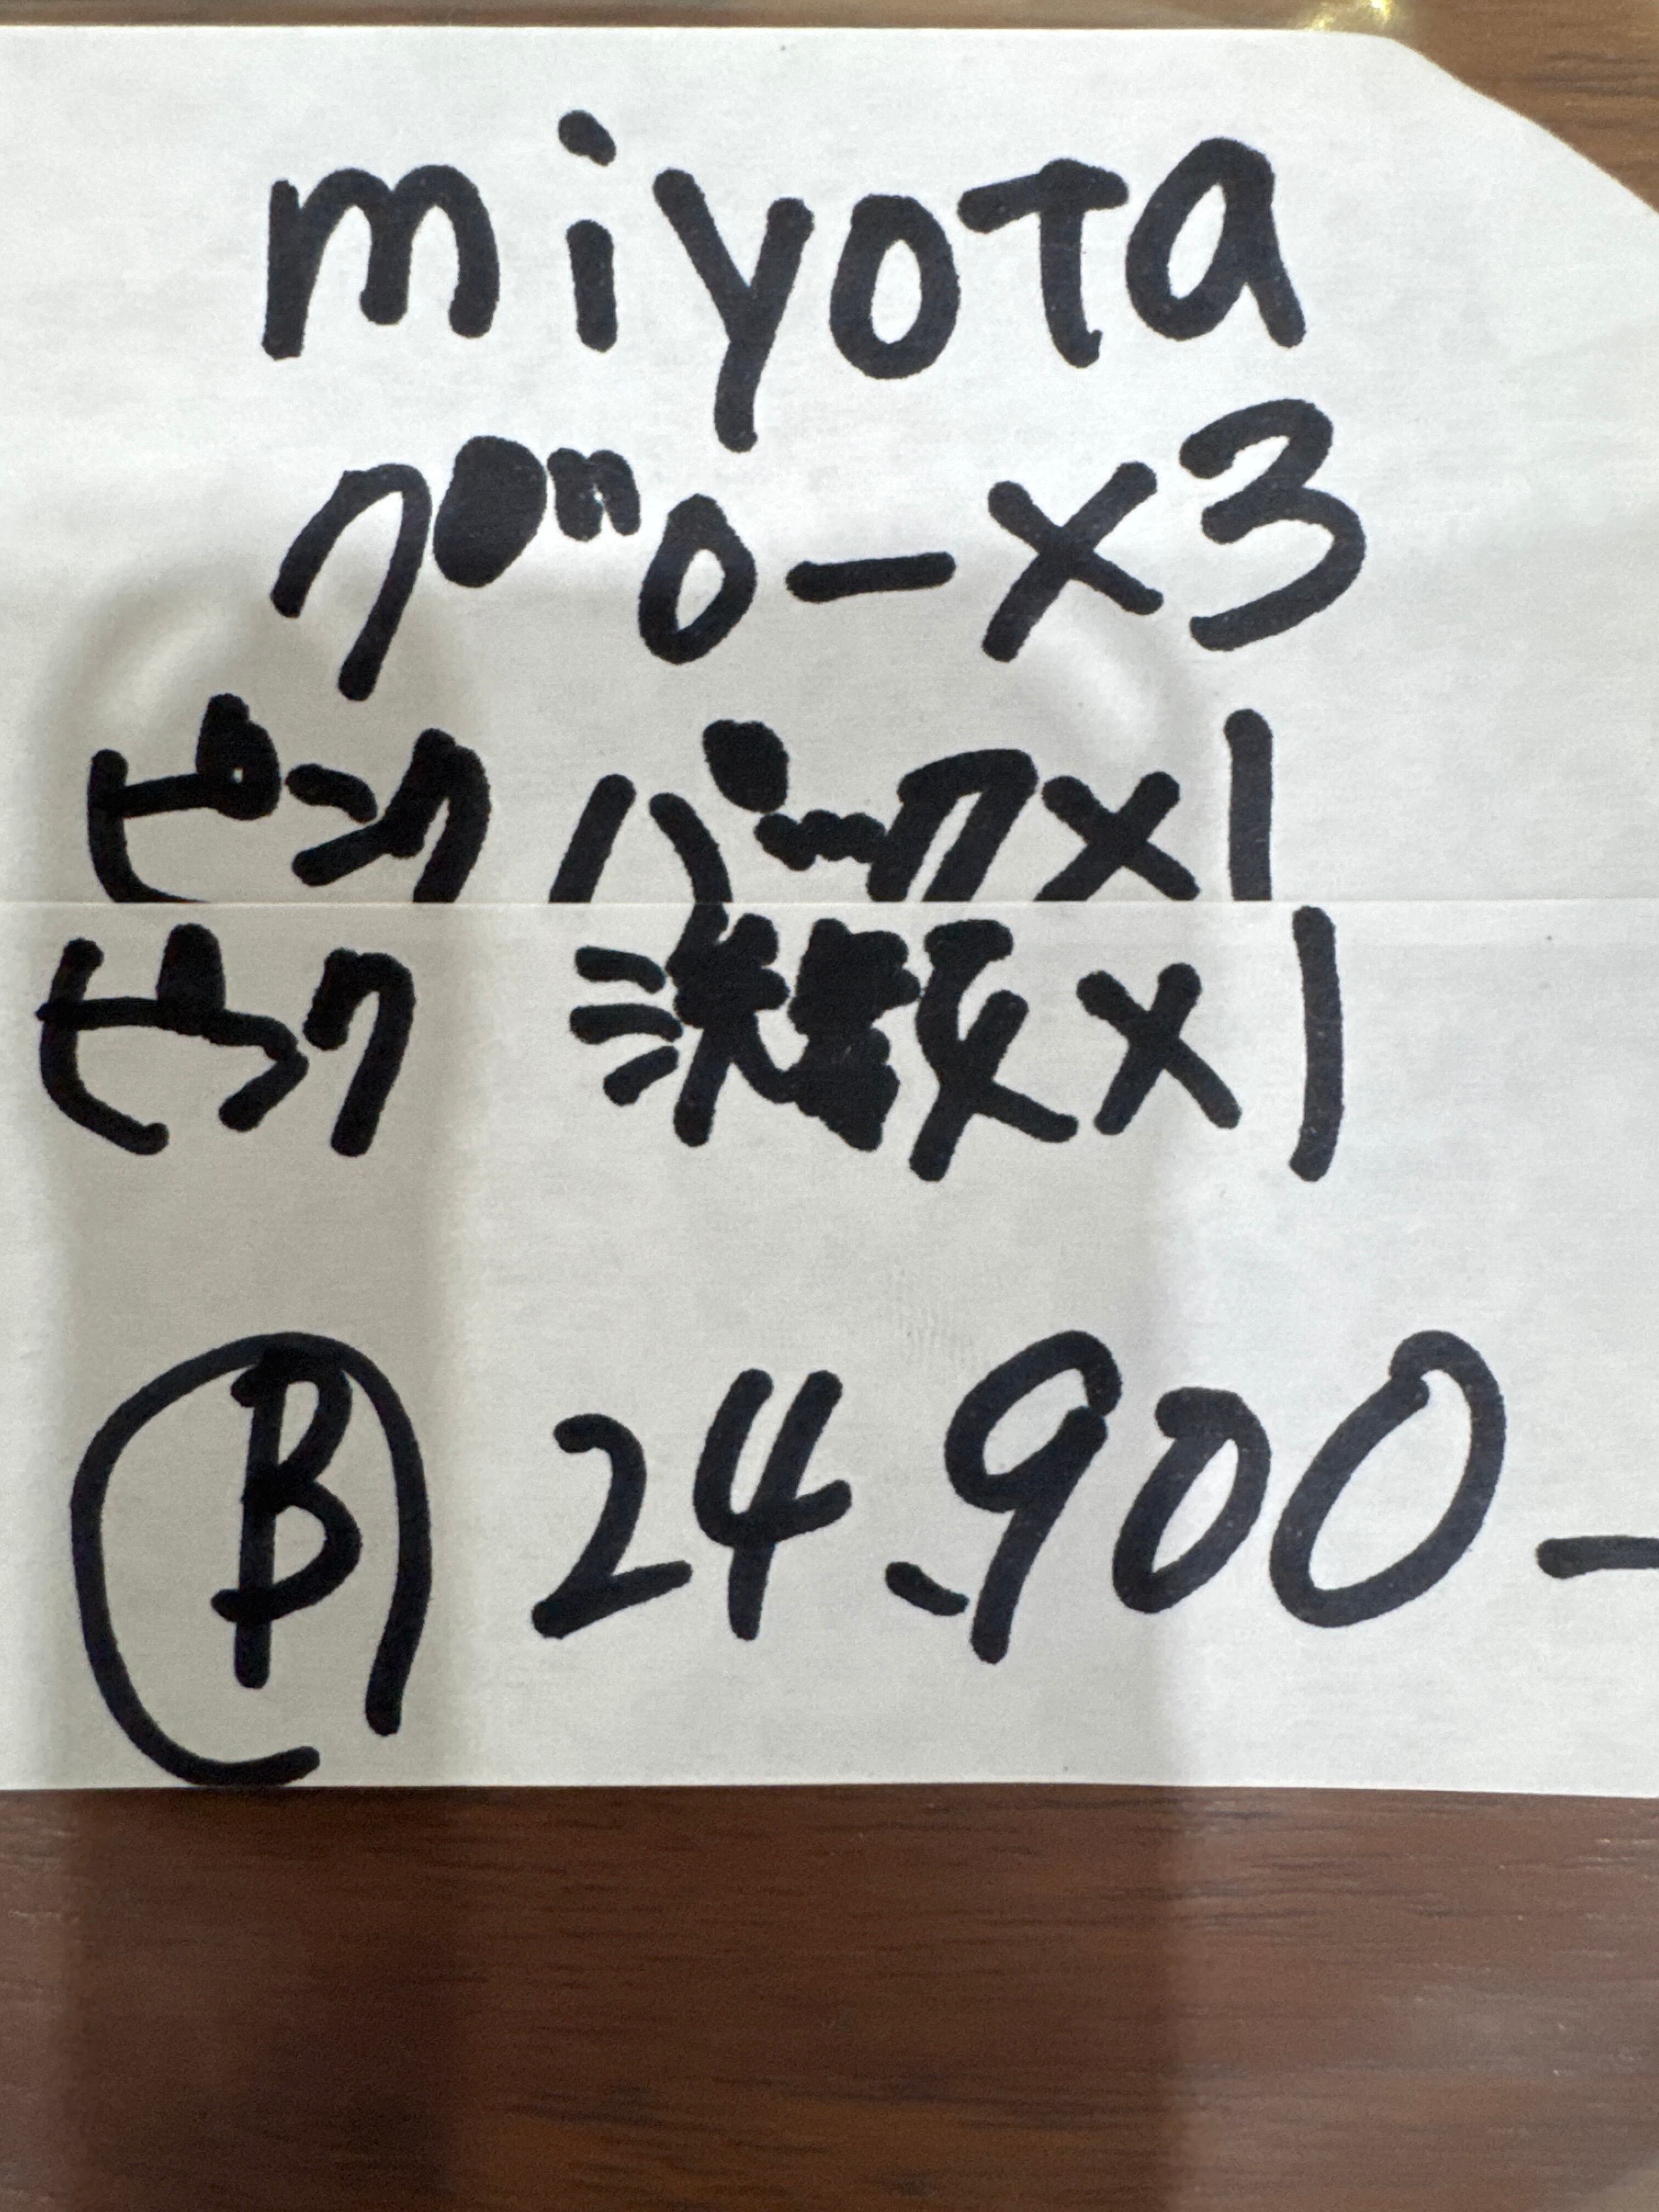 miyoTa
ｸﾞﾛｰ×3
ﾋﾟﾝｸ ﾊﾟｰｸ×1
ﾋﾟﾝｸ ×1
Ⓑ 24,900-